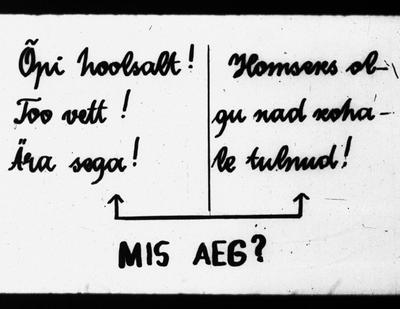 Õpi hoolsalt!
Too vett!
Ära sega!
Homseks ol-
gu nad koha-
le tulnud!
MIS AEG?